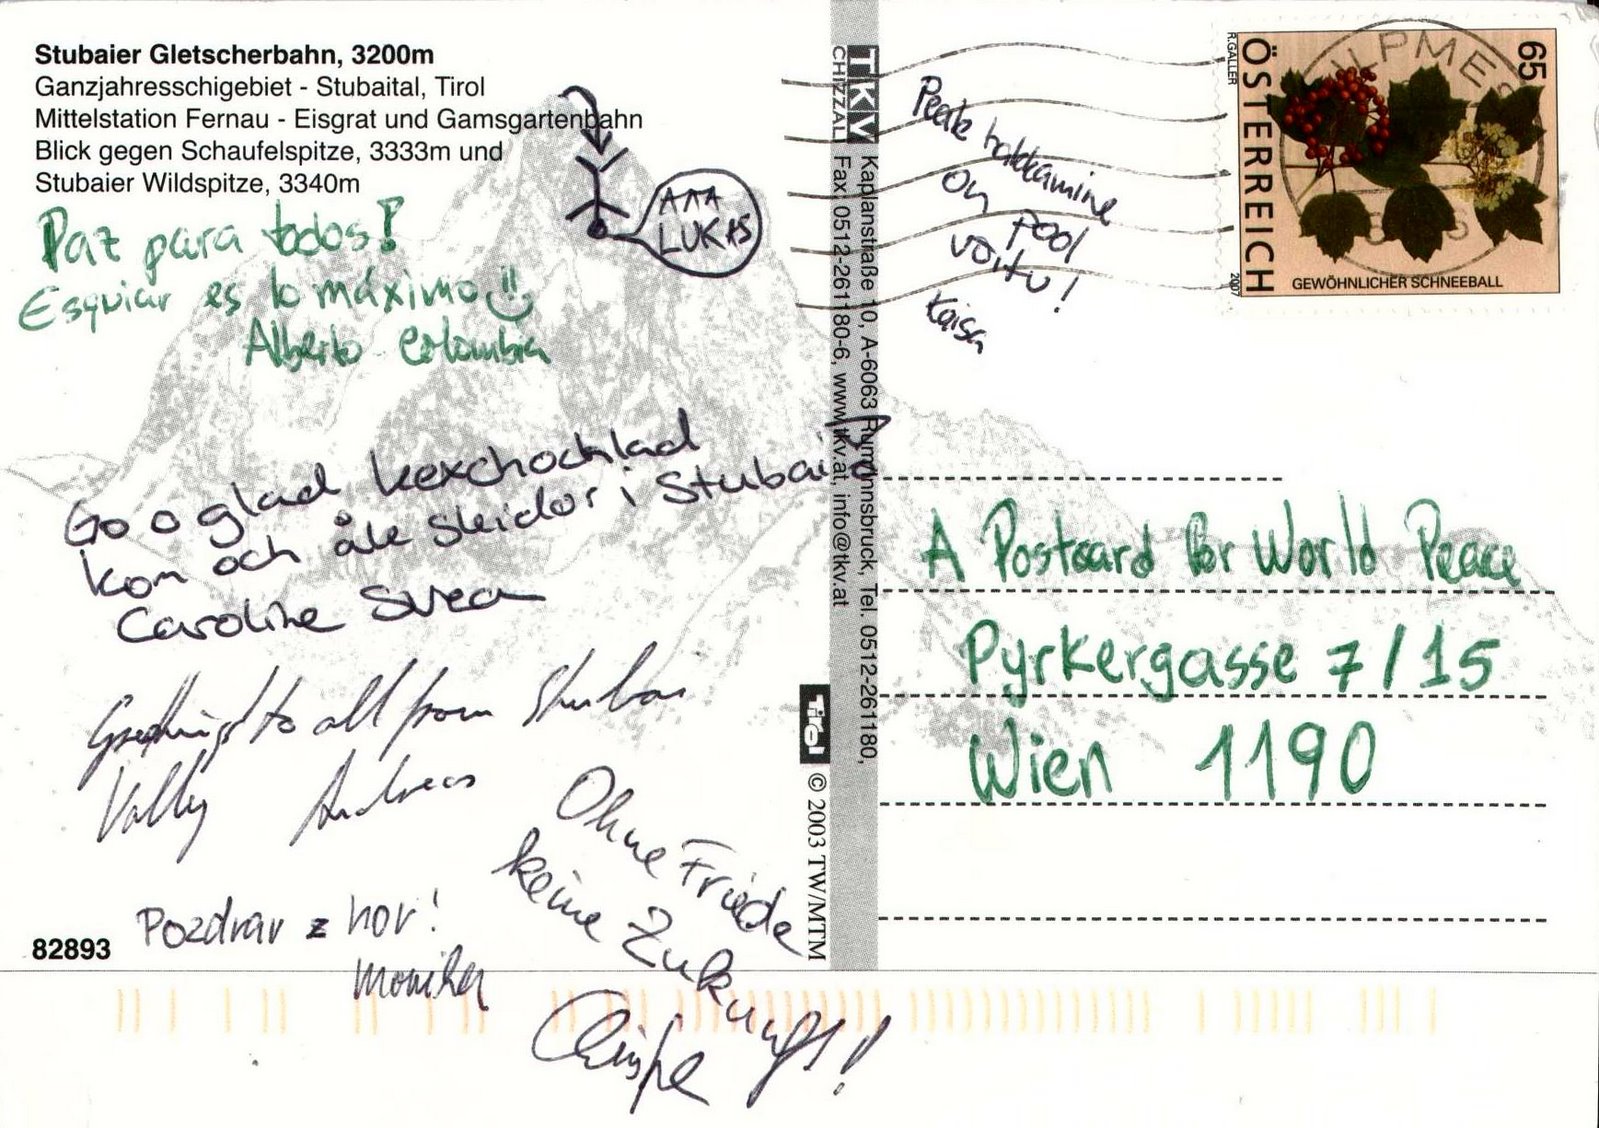 Stubaier Gletscherbahn, 3200m
Ganzjahresschigebiet - Stubaital, Tirol
Mittelstation Fernau - Eisgrat und Gamsgartenbahn
Blick gegen Schaufelspitze, 3333m und
Stubaier Wildspitze, 3340m
Paz para todos!
Esquiar es lo máximo
Alberto - Colombia
AAA
LUKAS
Go o glad kexchochlad
kom och åk skidor i Stubai
Caroline Svea
Greetings to all from Stubai
Valley Andreas
Pozdrav z hor!
Monika
Ohne Friede
keine Zukunft!
82893
TKV
CHIZZALI
Kaplanstraße 10, A-6063 Rum/Innsbruck, Tel. 0512-261180,
Fax 0512-261180-6, www.tkv.at, info@tkv.at
Tirol
© 2003 TW/MTM
Peate hakkamine
on pool
voitu!
Kaisa
R.GALLER
ÖSTERREICH
65
2007
GEWÖHNLICHER SCHNEEBALL
FULPMES
A Postcard for World Peace
Pyrkergasse 7/15
Wien 1190